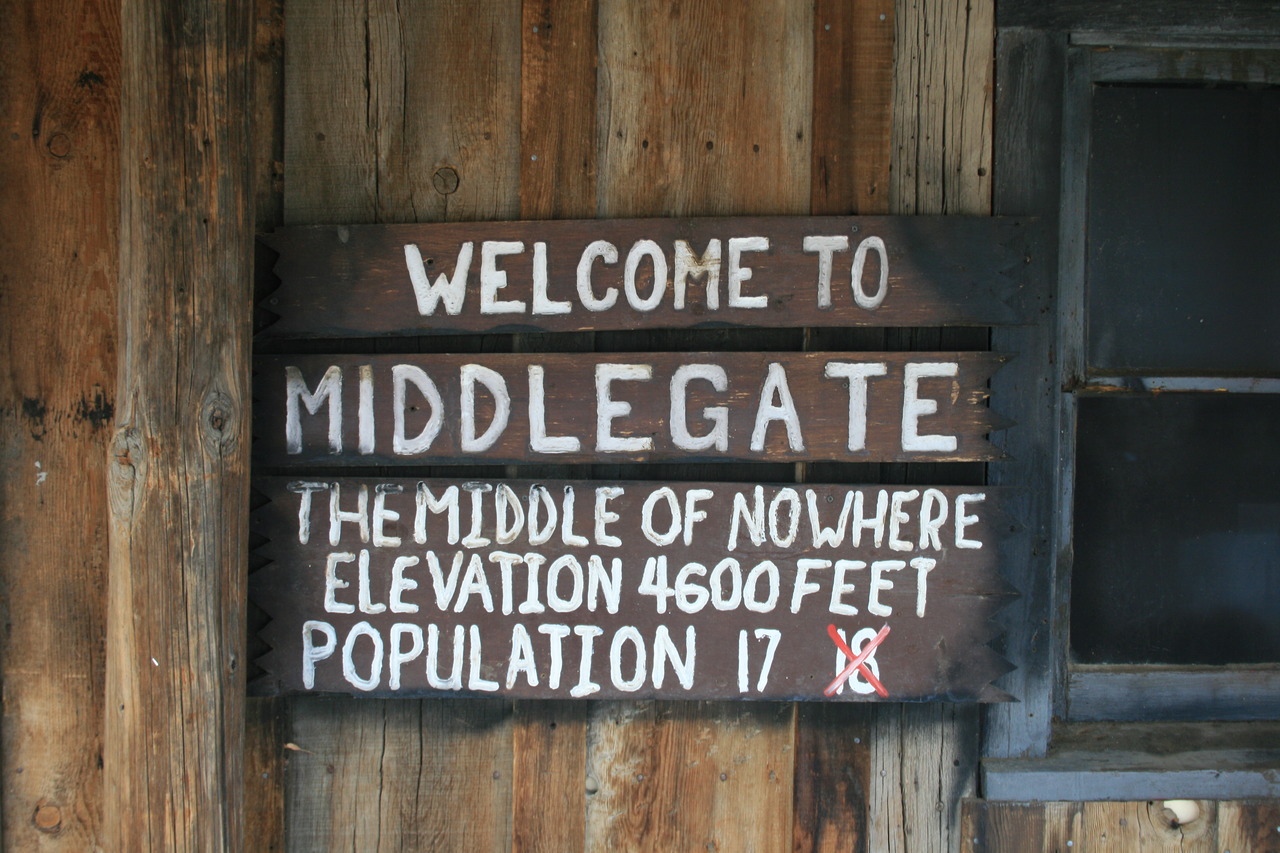 WELCOME TO
MIDDLEGATE
THE MIDDLE OF NOWHERE
ELEVATION 4600 FEET
POPULATION 17 18